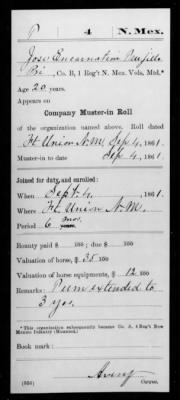 P 4 N. Mex.
Jose Encarnation Trujillo
Pri, Co. B, 1 Reg't N. Mex. Vols, Md.*
Age 20 years.
Appears on
Company Muster-in Roll
of the organization named above. Roll dated
Ft Union N.M. Sep 4, 1861.
Muster-in to date Sep 4, 1861.
Joined for duty, and enrolled:
When Sept. 4, 1861.
Where Ft. Union N.M.
Period 6 mos. years.
Bounty paid $ 100; due $ 100
Valuation of horse, $ 35 100
Valuation of horse equipments, $ 12 100
Remarks: extended to
3 yrs.
*This organization subsequently became Co. A, 1 Reg't New
Mexico Infantry (Mounted.)
Book mark:
(356) Avery
Copyist.